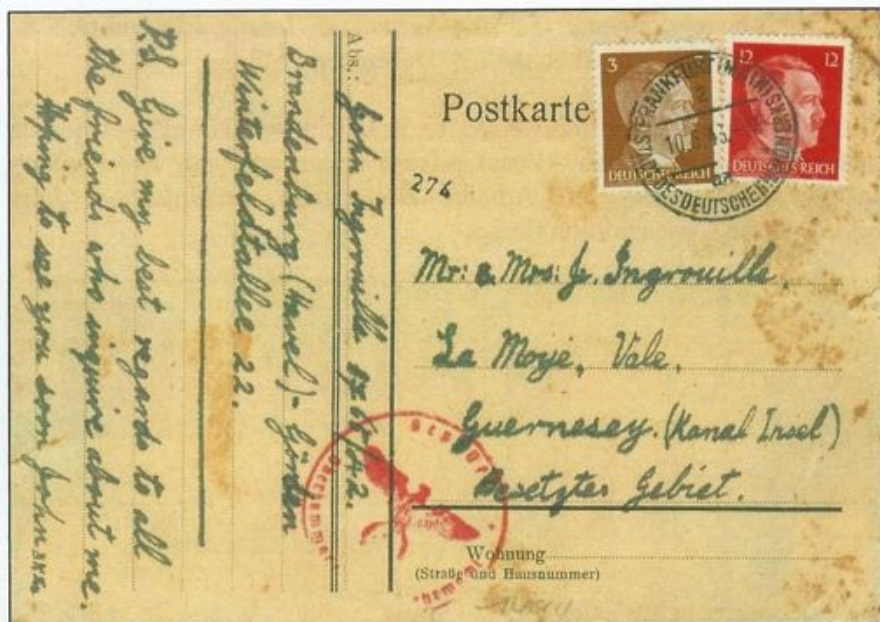 Postkarte
3
DEUTSCHES REICH
12 12
DEUTSCHES REICH
FRANKFURT
10. 43
DESDEUTSCHEN
276
Mr: & Mrs: J. Ingrouille
La Moye, Vale,
Guernesey. (Kanal Insel)
Besetztes Gebiet.
Wohnung
(Straße und Hausnummer)
Abs.: John Ingrouille
Brandenburg (Havel) - Görden
Winterfeldtallee 22.
P.S. Give my best regards to all
the friends who inquire about me.
Hoping to see you soon John